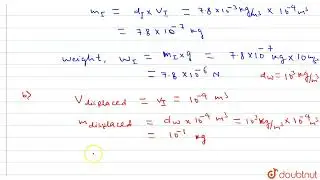 m_I = d_I × V_I = 7.8 × 10^-3 kg/m³ × 10^-4 m³
= 7.8 × 10^-7 kg
weight, W_I = m_I × g = 7.8 × 10^-7 kg × 10 m/s²
= 7.8 × 10^-6 N
d_w = 10³ kg/m³
b) V displaced = V_I = 10^-4 m³
m displaced = d_w × 10^-4 m³ = 10³ kg/m³ × 10^-4 m³
= 10^-1 kg
doubtnut